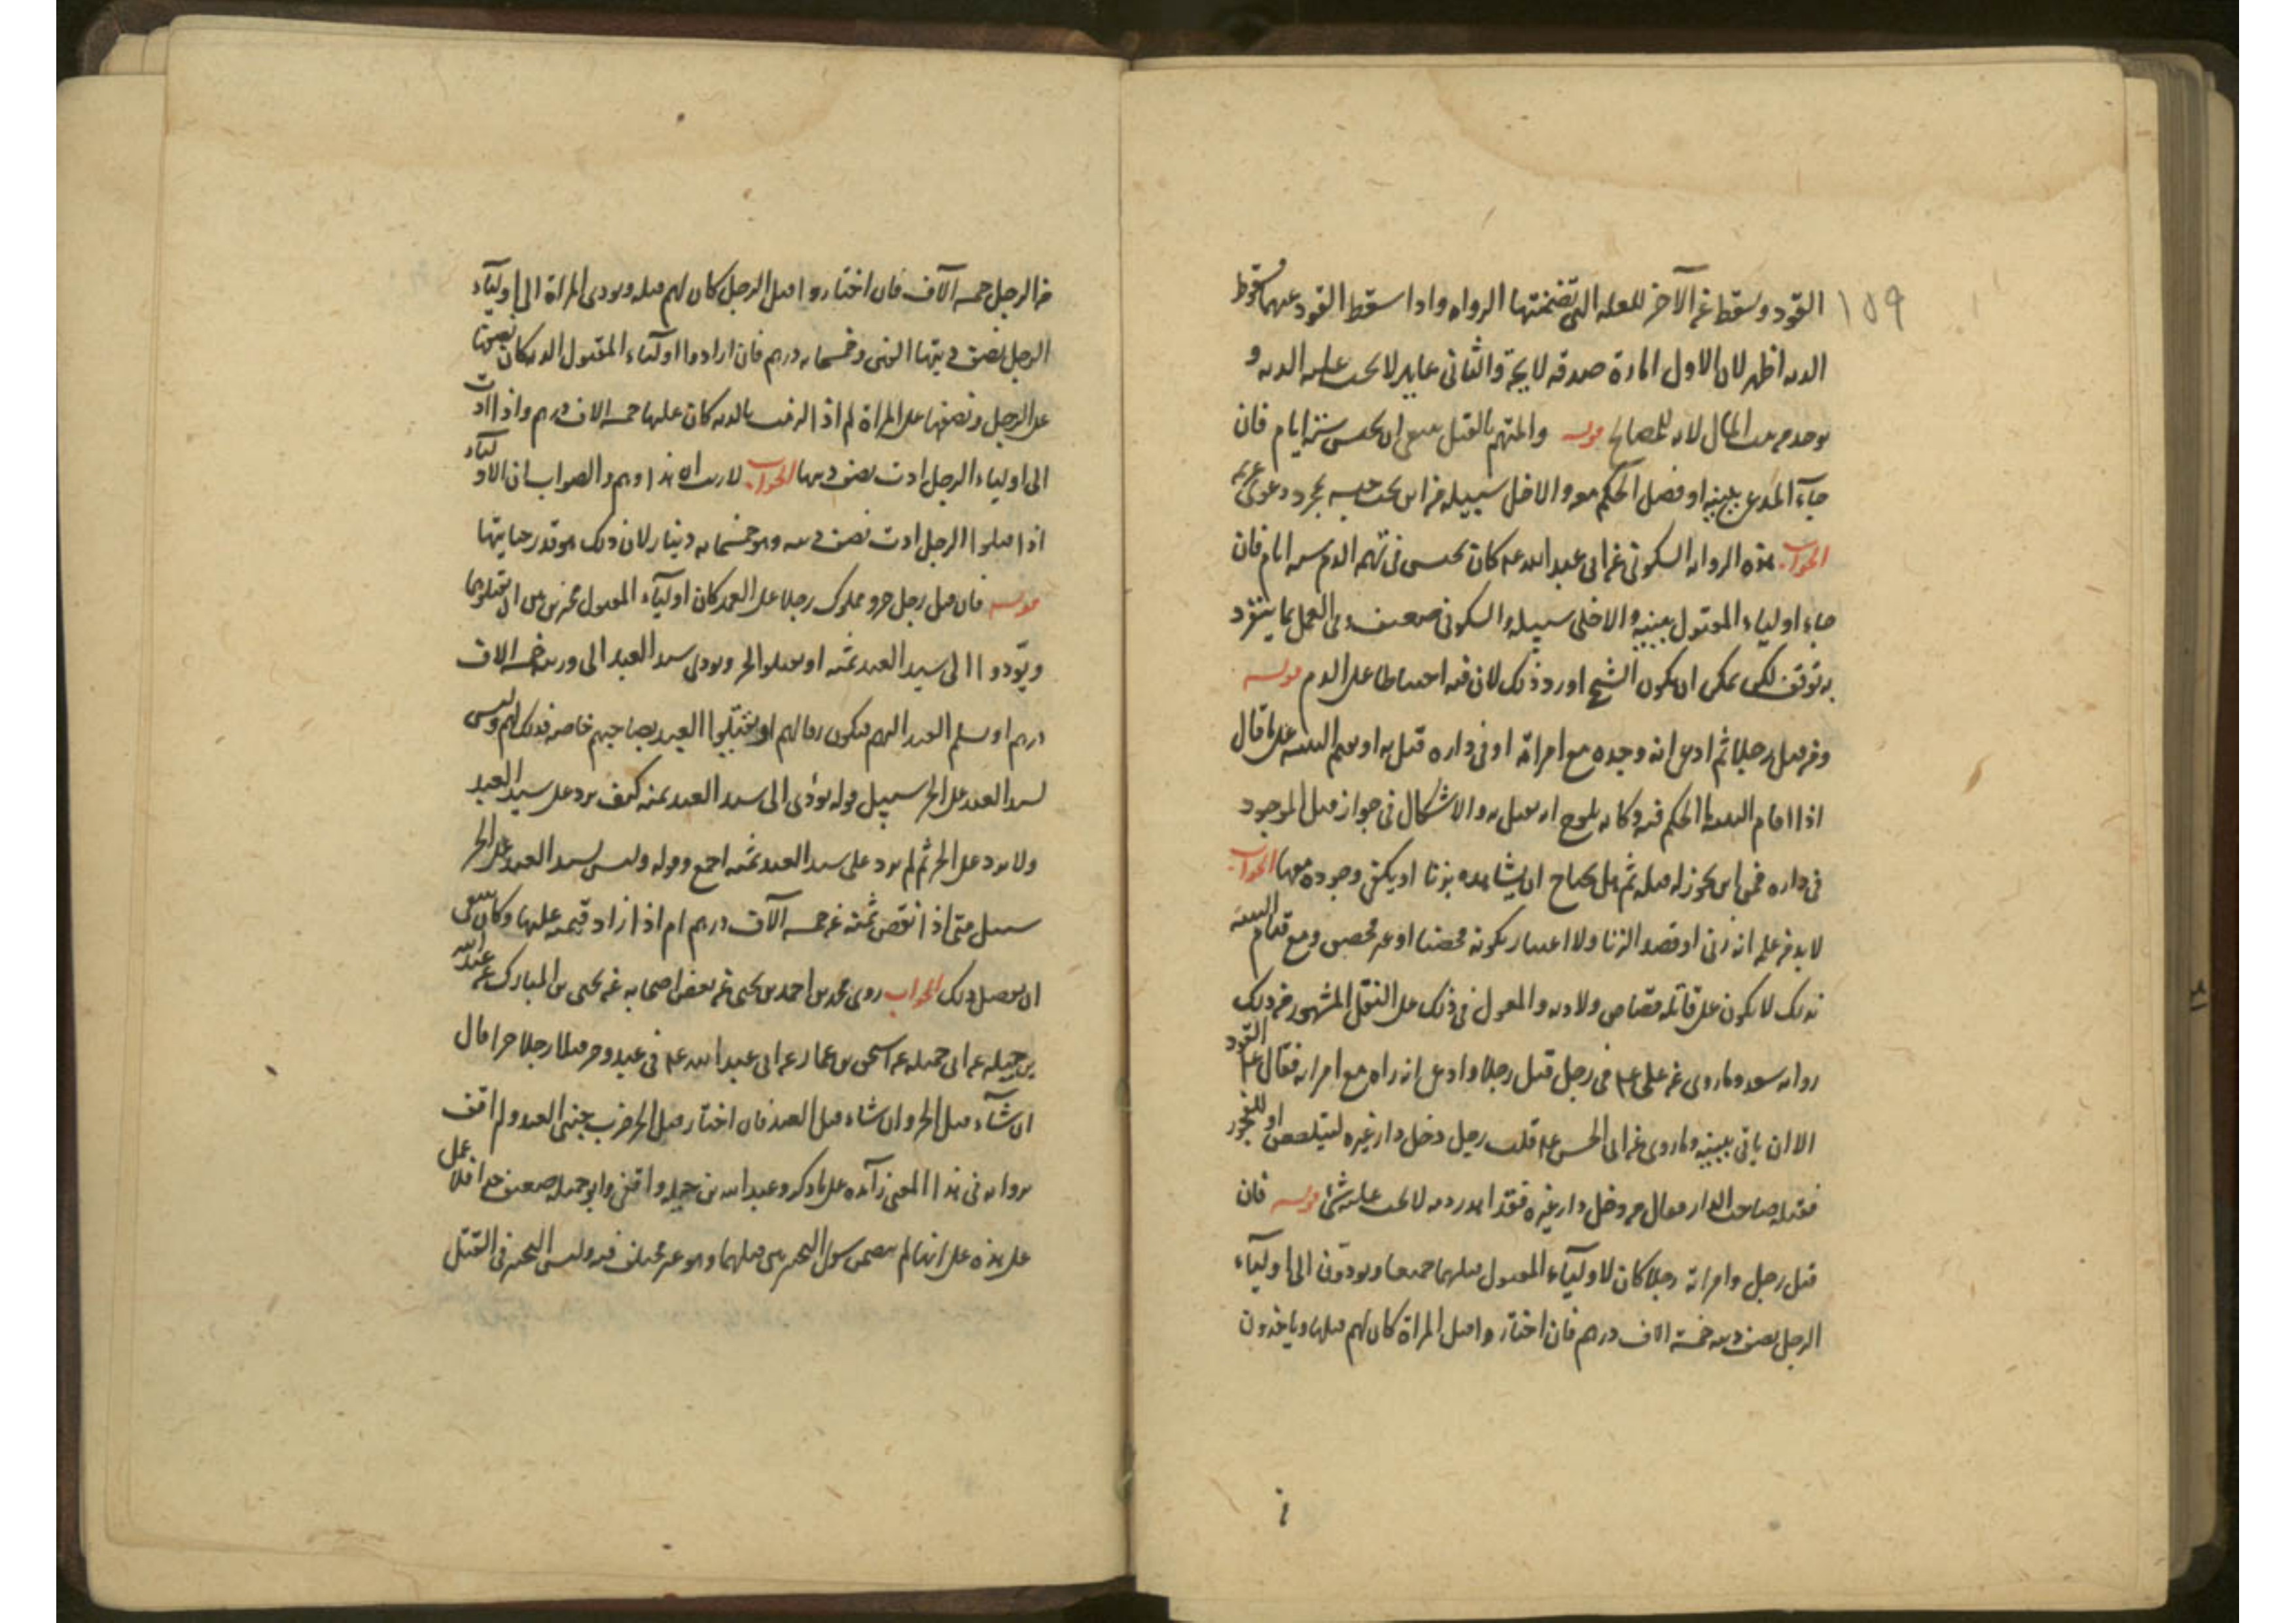 ١٥٩
القود وسقط عن الآخر للعلة التي تضمنتها الرواية واذا سقط القود عنهما سقوط
الدية اظهر لان الاول امارة صدقه لايحة والثاني لا يجب عليه الدية و
يوخذ من بيت المال لانه للمصالح قوله والمتهم بالقتل ينبغي ان يحبس ستة ايام فان
جاء المدعي ببينة او فصل الحكم معه والا خلى سبيله من اين يجب حبسه بمجرد دعوى غريم
الجواب هذه الرواية السكوني عن ابي عبد الله عم كان يحبس في تهمة الدم ستة ايام فان
جاء اولياء المقتول ببينة والا خلى سبيله والسكوني ضعيف وفي العمل بما ينفرد
به توقف لكن يمكن ان يكون الشيخ اورد ذلك لان فيه احتياطا على الدم قوله
ومن قتل رجلا ثم ادعى انه وجده مع امراته او في داره قتل به او يقيم البينة على ما قال
اذا اقام البينة ما الحكم فيه وكانه يلوح انه يقتل به والاشكال في جواز قتل الموجود
في داره فمن اين يجوز له قتله ثم هل يحتاج ان يشاهده يزنا او يكفي وجوده معها الجواب
لابد من علمه انه زنى او قصد الزنا ولا اعتبار بكونه محصنا او غير محصن ومع قيام البينة
بذلك لا يكون على قاتله قصاص ولا دية والمعول في ذلك على النقل المشهور من ذلك
رواية سعد وما روي عن علي عم في رجل قتل رجلا وادعى انه راه مع امراته فقال عم القود
الا ان ياتي ببينة وما روي عن ابي الحسن عم قلت رجل دخل دار غيره ليتلصص او للفجور
فقتله صاحب الدار فقال من دخل دار غيره فقد اهدر دمه لا يجب عليه شئ قوله فان
قتل رجل وامراة رجلا كان لاولياء المقتول قتلهما جميعا ويودون الى اولياء
الرجل نصف ديته خمسة الاف درهم فان اختاروا قتل المراة كان لهم قتلها وياخذون
من الرجل خمسة آلاف فان اختاروا قتل الرجل كان لهم قتله ويودي المراة الى اولياء
الرجل نصف ديتها الفي وخمسماية درهم فان ارادوا اولياء المقتول الدية كان نصفها
على الرجل ونصفها على المراة لم اذا الدية كان عليها خمسة الاف درهم واذا ادت
الى اولياء الرجل ادت نصف ديتها الجواب لا ريب ان هذا وهم والصواب ان الاولياء
اذا قتلوا الرجل ادت نصف ديته وهو خمسماية دينار لان ذلك هو قدر جنايتها
قوله فان قتل رجل حر ومملوك رجلا على العمد كان اولياء المقتول مخيرين بين ان يقتلوهما
ويودوا الى سيد العبد ثمنه او يقتلوا الحر ويودي سيد العبد الى ورثته خمسة الاف
درهم او يسلم العبد اليهم فيكون رقا لهم او يقتلوا العبد بصاحبهم خاصة فذلك لهم وليس
لسيد العبد على الحر سبيل قوله يودى الى سيد العبد ثمنه كيف يرد على سيد العبد
ولا يرد على الحر ثم لم يرد على سيد العبد ثمنه اجمع وقوله وليس لسيد العبد على الحر
سبيل متى اذا نقص ثمنه عن خمسة آلاف درهم ام اذا زاد قيمته عليها وكان ينبغي
ان يفصل ذلك الجواب روى محمد بن احمد بن يحيى عن بعض اصحابه عن يحيى بن المبارك عن عبد الله
بن جبلة عن ابي جميلة عن اسحق بن عمار عن ابي عبد الله عم في عبد وحر قتلا رجلا حرا قال
ان شاء قتل الحر وان شاء قتل العبد فان اختار قتل الحر ضرب جنبي العبد ولم اقف
برواية في هذا المعنى زائدة على ما ذكره وعبد الله بن جبلة واقفي وابو جميلة ضعيف فلا عمل
على هذه على انها لم يتضمن سوى التخيير في قتلهما وهو غير مختلف فيه وليس التخيير في القتل